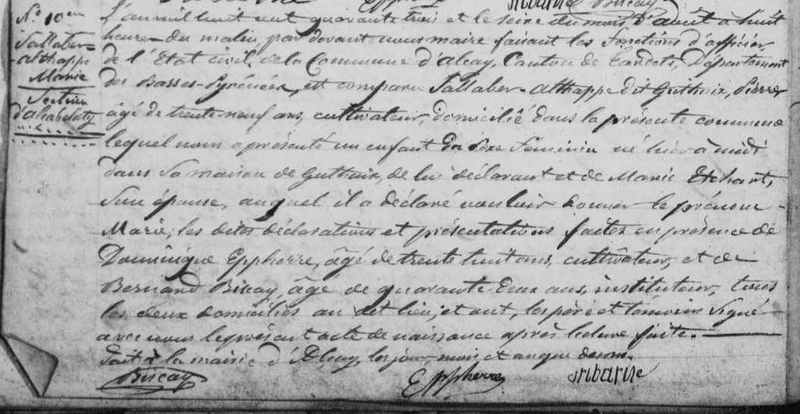 N.° 10
Sallaber-
althappe
Marie
Section
d'alçabehety
L'an mil huit cent quarante trois et le seize du mois d'août à huit
heures du matin, par devant nous maire faisant les fonctions d'officier
de l'Etat civil, de la Commune d'alçay, Canton de Tardets, Département
des Basses-Pyrénées, est comparu Sallaber-althappe dit Guthair, Pierre
âgé de trente neuf ans, cultivateur, domicilié dans la présente commune
lequel nous a présenté un enfant du Sexe Feminin né hier à midi
dans sa maison de Guthair, de lui déclarant et de Marie Etchart,
Son épouse, auquel il a déclaré vouloir donner le prénom
Marie, les dites déclarations et présentations faites en présence de
Dominique Eppherre, âgé de trente huit ans, cultivateur, et de
Bernard Biscay, âgé de quarante deux ans, instituteur, tous
les deux domiciliés au dit lieu, et ont, les père et témoins Signé
avec nous le présent acte de naissance après lecture faite.
fait à la mairie d'Alçay, les jour, mois, et an que dessus.
Biscay Eppherre